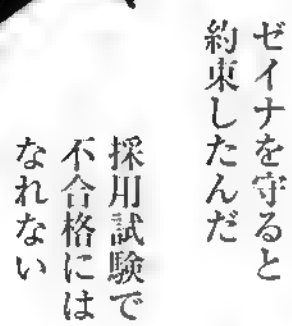 ゼイナを守ると
約束したんだ
採用試験で
不合格には
なれない